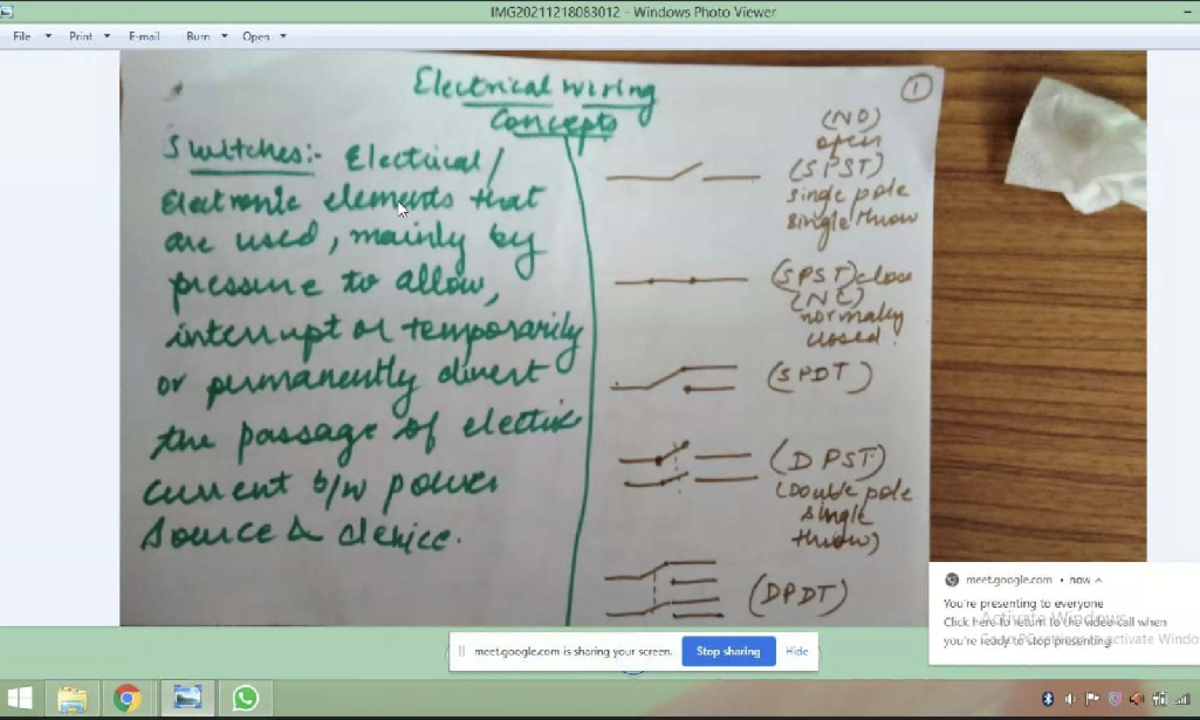 IMG20211218083012 - Windows Photo Viewer
File Print E-mail Burn Open
Electrical wiring
Concepts
1
Switches:- Electrical/
Electronic elements that
are used, mainly by
pressure to allow,
interrupt or temporarily
or permanently divert
the passage of electric
current b/w power
source & device.
(NO)
open
(SPST)
single pole
single throw
(SPST) close
(NC)
normally
closed.
(SPDT)
(DPST)
(Double pole
single
throw)
(DPDT)
meet.google.com • now
You're presenting to everyone
Click here to return to the video call when
you're ready to stop presenting
Activate Windows
Go to PC settings to activate Windo
meet.google.com is sharing your screen.
Stop sharing
Hide